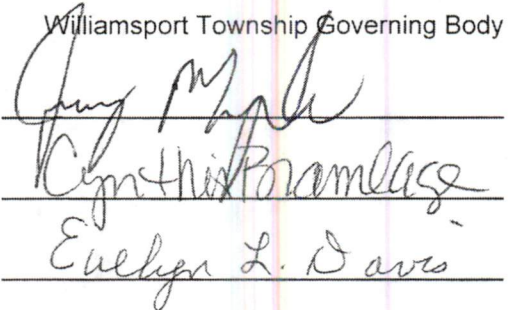 Williamsport Township Governing Body
Cynthia Bramlage
Evelyn L. Davis